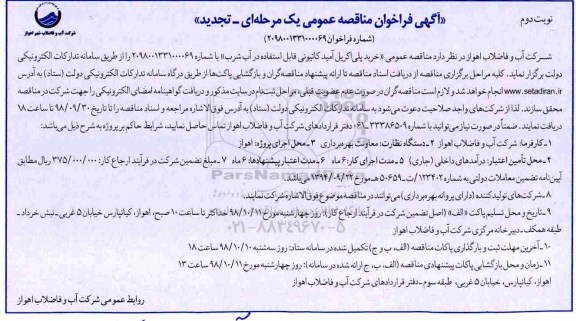 نوبت دوم
«آگهی فراخوان مناقصه عمومی یک مرحله‌ای ـ تجدید»
(شماره فراخوان ۲۰۹۸۰۰۱۳۳۱۰۰۰۰۶۹)
شرکت آب و فاضلاب شهر اهواز
شــرکت آب و فاضلاب اهواز در نظر دارد مناقصه عمومی «خرید پلی‌اکریل آمید کاتیونی قابل استفاده در آب شرب» با شماره ۲۰۹۸۰۰۱۳۳۱۰۰۰۰۶۹ را از طریق سامانه تدارکات الکترونیکی
دولت برگزار نماید. کلیه مراحل برگزاری مناقصه از دریافت اسناد مناقصه تا ارائه پیشنهاد مناقصه‌گران و بازگشایی پاکت‌ها از طریق درگاه سامانه تدارکات الکترونیکی دولت (ستاد) به آدرس
www.setadiran.ir انجام خواهد شد و لازم است مناقصه‌گران در صورت عدم عضویت قبلی، مراحل ثبت‌نام در سایت مذکور و دریافت گواهینامه امضای الکترونیکی را جهت شرکت در مناقصه
محقق سازند. لذا از شرکت‌های واجد صلاحیت دعوت می‌شود به سامانه تدارکات الکترونیکی دولت (ستاد) به آدرس فوق‌الاشاره مراجعه و اسناد مناقصه را تا تاریخ ۹۸/۰۹/۳۰ تا ساعت ۱۸
دریافت نمایند. ضمناً در صورت نیاز می‌توانید با شماره ۳۳۳۸۶۵۰۹-۰۶۱ دفتر قراردادهای شرکت آب و فاضلاب اهواز تماس حاصل نمایید، شرایط حاکم بر پروژه به شرح ذیل می‌باشد:
۱-کارفرما: شرکت آب و فاضلاب اهواز ۲-دستگاه نظارت: معاونت بهره‌برداری ۳-محل اجرای پروژه: اهواز
۴-محل تأمین اعتبار: درآمدهای داخلی (جاری) ۵-مدت اجرای کار: ۶ ماه ۶-مدت اعتبار پیشنهادها: ۶ ماه ۷-مبلغ تضمین شرکت در فرآیند ارجاع کار: ۳۷۵/۰۰۰/۰۰۰ ریال مطابق
آیین‌نامه تضمین معاملات دولتی به شماره ۱۲۳۴۰۲/ت۵۰۶۵۹هـ مورخ ۱۳۹۴/۰۹/۲۲ می‌باشد.
۸-شرکت‌های تولیدکننده (دارای پروانه بهره‌برداری) می‌توانند در مناقصه موضوع فوق‌الاشاره شرکت نمایند.
۹-تاریخ و محل تسلیم پاکت «الف» (اصل تضمین شرکت در فرآیند ارجاع کار): روز چهارشنبه مورخ ۹۸/۱۰/۱۱ حداکثر تا ساعت ۱۰ صبح، اهواز، کیانپارس خیابان ۵ غربی-نبش خرداد-
طبقه همکف، دبیرخانه مرکزی شرکت آب و فاضلاب اهواز
۱۰-آخرین مهلت ثبت و بارگذاری پاکات مناقصه (الف، ب و ج) تکمیل شده در سامانه ستاد: روز سه‌شنبه ۹۸/۱۰/۱۰ ساعت ۱۸
۱۱-زمان و محل بازگشایی پاکات پیشنهادی مناقصه (الف، ب، ج ارائه شده در سامانه): روز چهارشنبه مورخ ۹۸/۱۰/۱۱ ساعت ۱۳
اهواز، کیانپارس، خیابان ۵ غربی، طبقه سوم-دفتر قراردادهای شرکت آب و فاضلاب اهواز
روابط عمومی شرکت آب و فاضلاب اهواز
۰۲۱-۸۸۳۴۹۶۷۰-۵